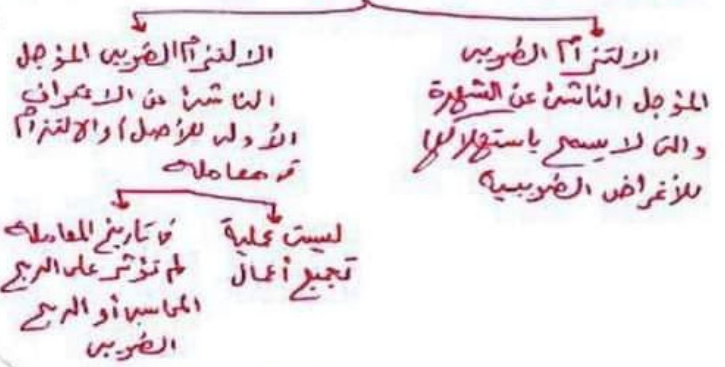 الالتزام الضريبى
المؤجل الناشئ عن الشهرة
والتى لا يسمح باستهلاكها
للأغراض الضريبية
الالتزام الضريبى المؤجل
الناشئ عن الاعتراف
الأولى للأصل أو الالتزام
فى معاملة
ليست عملية
تجميع أعمال
فى تاريخ المعاملة
لم تؤثر على الربح
المحاسبى أو الربح
الضريبى